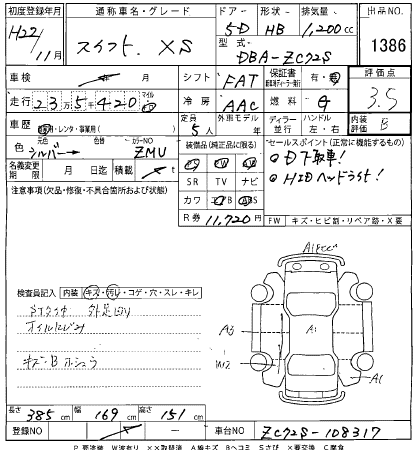 初度登録年月 通称車名・グレード ドアー 形状 排気量 出品NO
H22/11月 スイフト. XS 5D HB 1,200cc 1386
型式 DBA-ZC72S
車検 月 シフト FAT 保証書 有・無 評価点 3.5
走行 23万5千420 マイル 冷房 AAC 燃料 G
車歴 自家・レンタ・事業用( ) 定員 5人 外車モデル年 ディーラー・並行 ハンドル 左・右 内装評価 B
色 元色 シルバー 色替 カラーNO ZMU 装備品(純正品に限る) *セールスポイント(正常に機能するもの)
名義変更期限 月 日迄 積載 SR TV ナビ ◎D下取車!
注意事項(欠品・修復・不具合箇所および状態) カワ AB ABS ◎HIDヘッドライト!
R券 11,720円 FW キズ・ヒビ割・リペア跡・X要
検査員記入 内装 キズ・汚レ・コゲ・穴・スレ・キレ
オイルにじみ
キズ・B ホシュウ
A1
A3
A1
長さ 385cm 幅 169cm 高さ 151cm
登録NO 車台NO ZC72S-108317
P要塗装 W波有リ ××取替済 A線キズ Bヘコミ Sさび ×要交換 C腐食